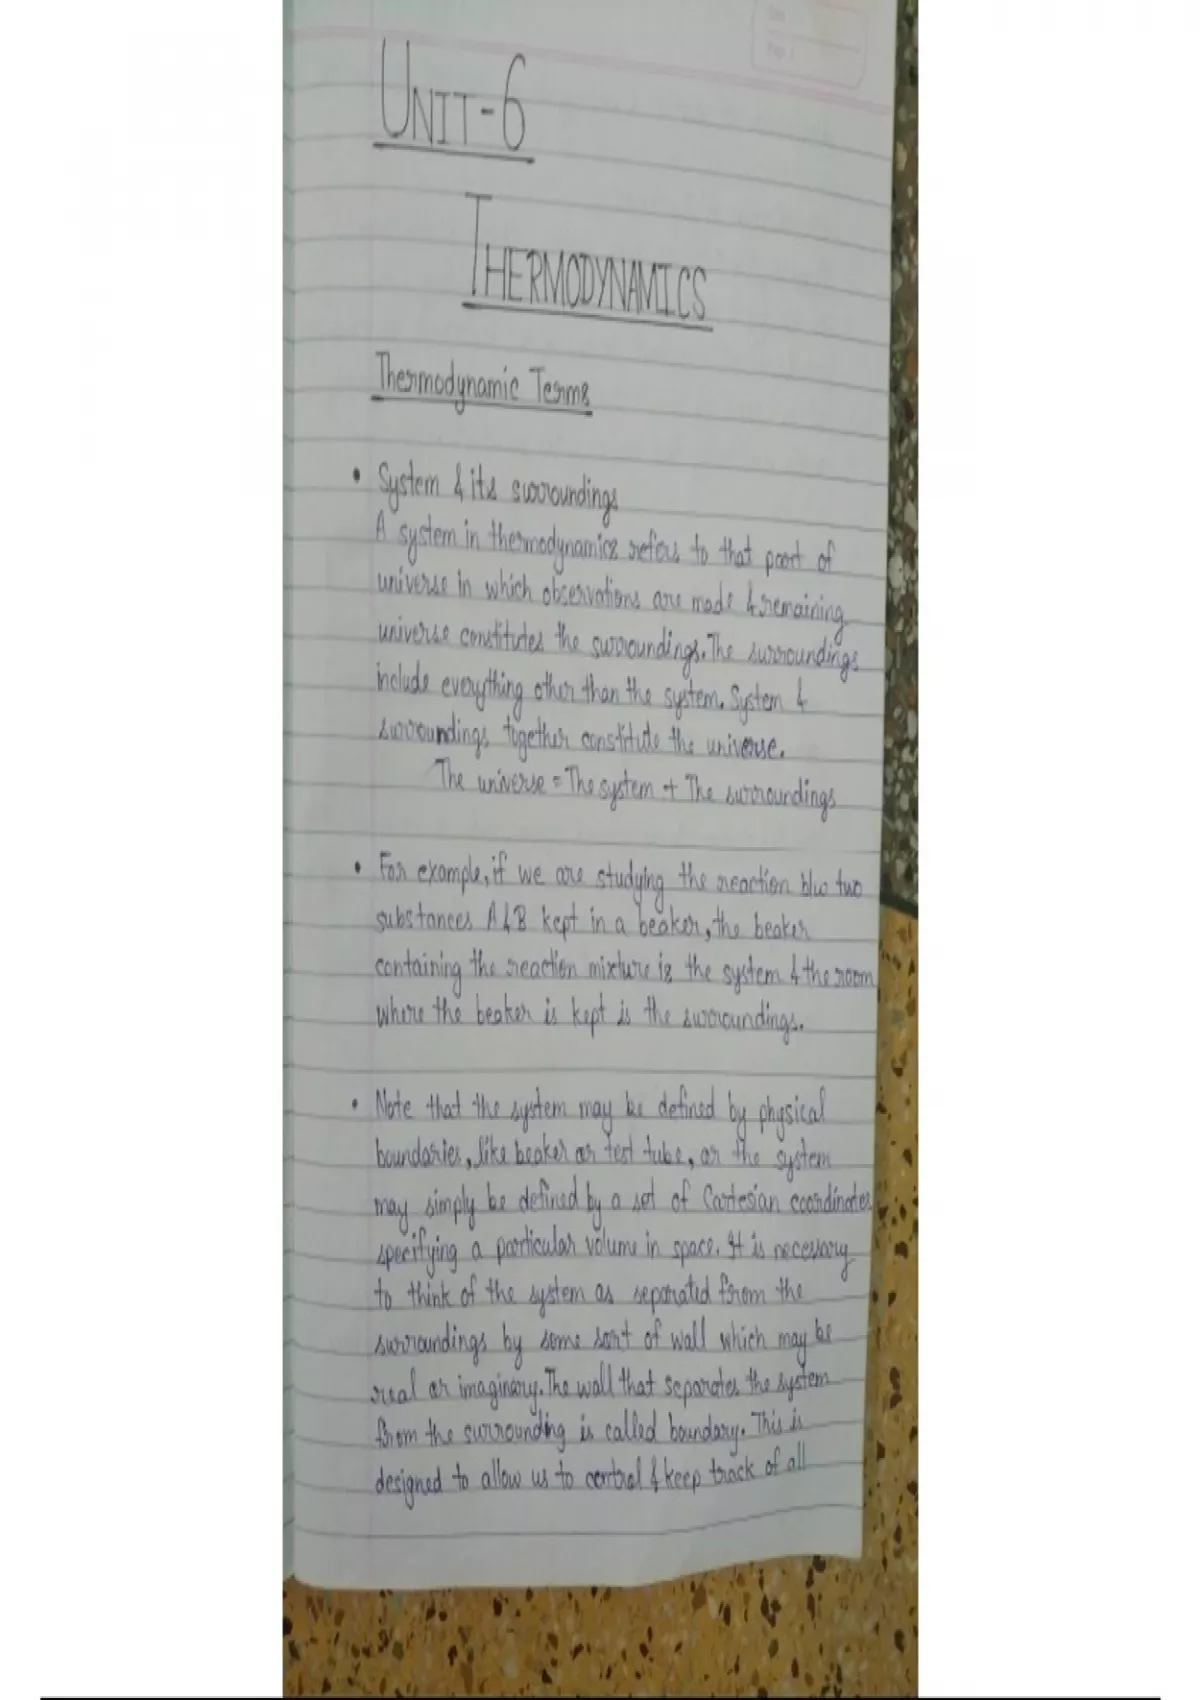 UNIT-6
THERMODYNAMICS
Thermodynamic Terms
• System & its surroundings
A system in thermodynamics refers to that part of
universe in which observations are made & remaining
universe constitutes the surroundings. The surroundings
include everything other than the system. System &
surroundings together constitute the universe.
The universe = The system + The surroundings
• For example, if we are studying the reaction b/w two
substances A & B kept in a beaker, the beaker
containing the reaction mixture is the system & the room
where the beaker is kept is the surroundings.
• Note that the system may be defined by physical
boundaries, like beaker or test tube, or the system
may simply be defined by a set of Cartesian coordinates
specifying a particular volume in space. It is necessary
to think of the system as separated from the
surroundings by some sort of wall which may be
real or imaginary. The wall that separates the system
from the surrounding is called boundary. This is
designed to allow us to control & keep track of all